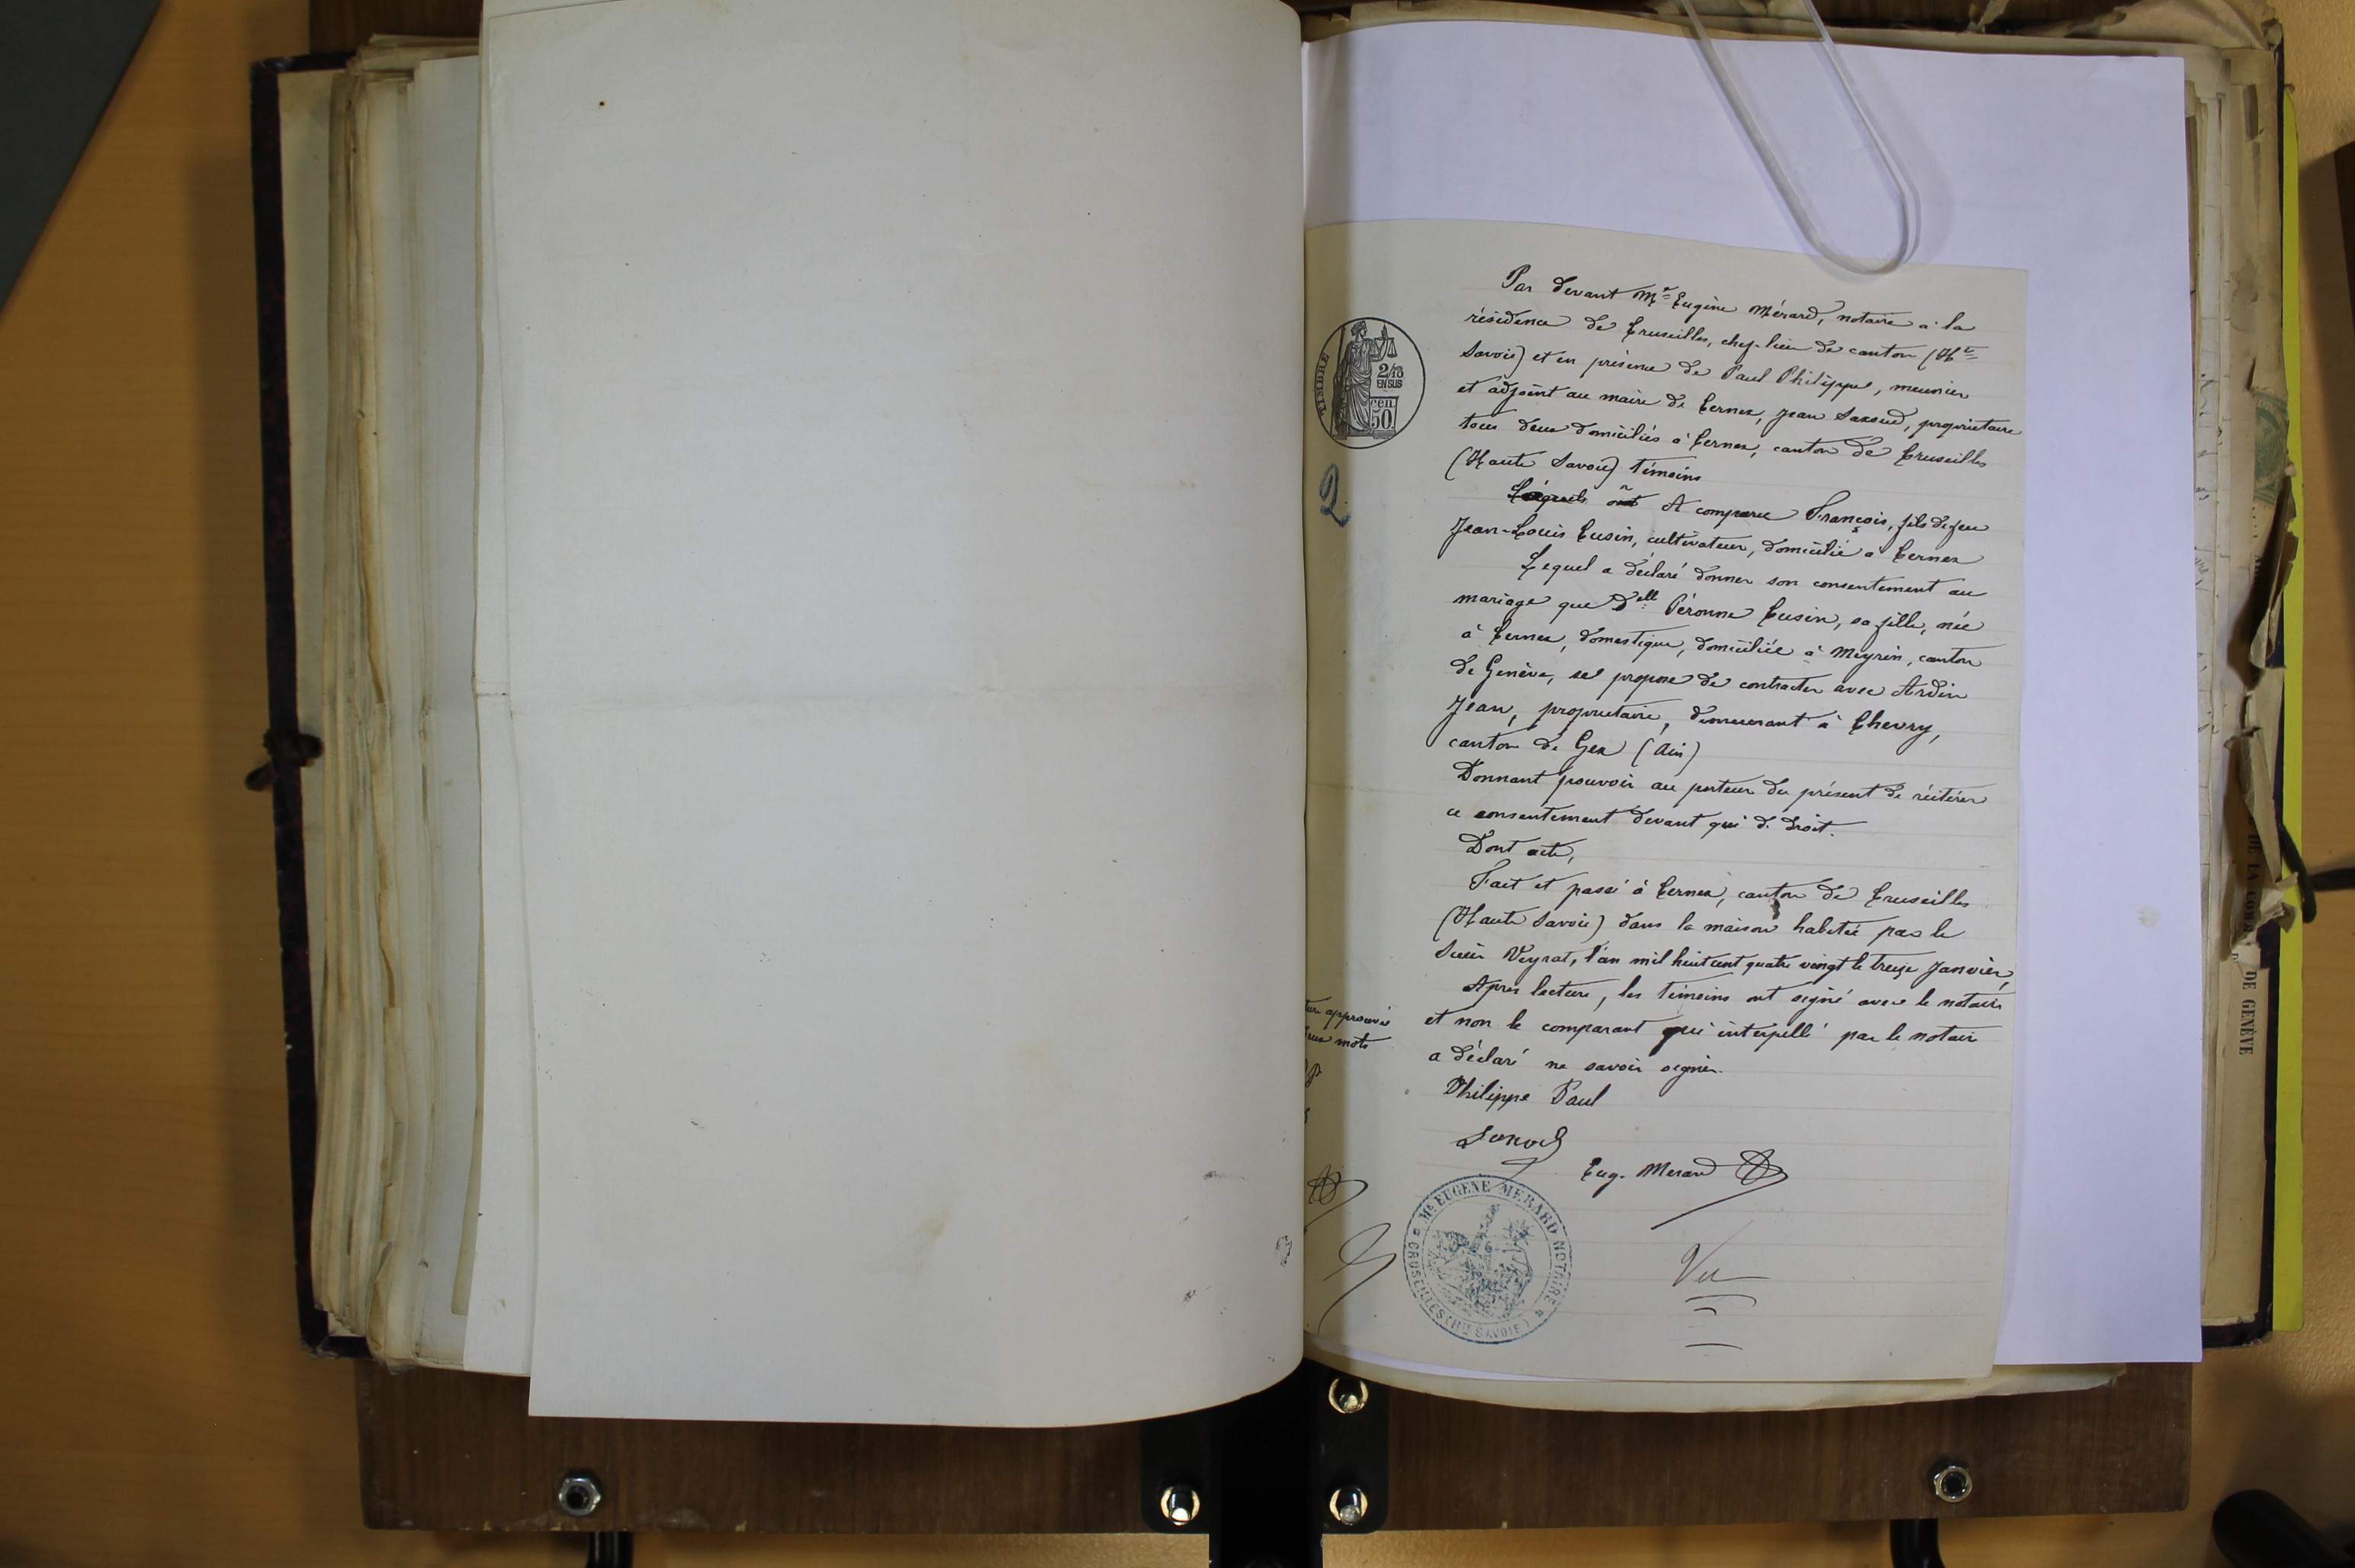 Par devant Me Eugène Mérard, notaire à la
résidence de Cruseilles, chef-lieu de canton (Hte
Savoie) et en présence de Paul Philippe, meunier
et adjoint au maire de Cernex, Jean, propriétaire
tous deux domiciliés à Cernex, canton de Cruseilles
(Haute Savoie) témoins
A comparu François, fils de feu
Jean-Louis Cusin, cultivateur, domicilié à Cernex
Lequel a déclaré donner son consentement au
mariage que Delle Péronne Cusin, sa fille, née
à Cernex, domestique, domiciliée à Meyrin, canton
de Genève, se propose de contracter avec Ardin
Jean, propriétaire, demeurant à Chevry,
canton de Gex (Ain)
Donnant pouvoir au porteur du présent de réitérer
ce consentement devant qui de droit.
Dont acte,
Fait et passé à Cernex, canton de Cruseilles
(Haute Savoie) dans la maison habitée par le
Sieur Veyrat, l'an mil huit cent quatre vingt le treize Janvier,
Après lecture, les témoins ont signé avec le notaire
et non le comparant qui interpellé par le notaire
a déclaré ne savoir signer.
Philippe Paul
Eug. Merard
Vu
TIMBRE
2/10
EN SUS
50 cen
2
approuvé
mots
Me EUGÈNE MERARD NOTAIRE
CRUSEILLES (Hte SAVOIE)
DE GENÈVE